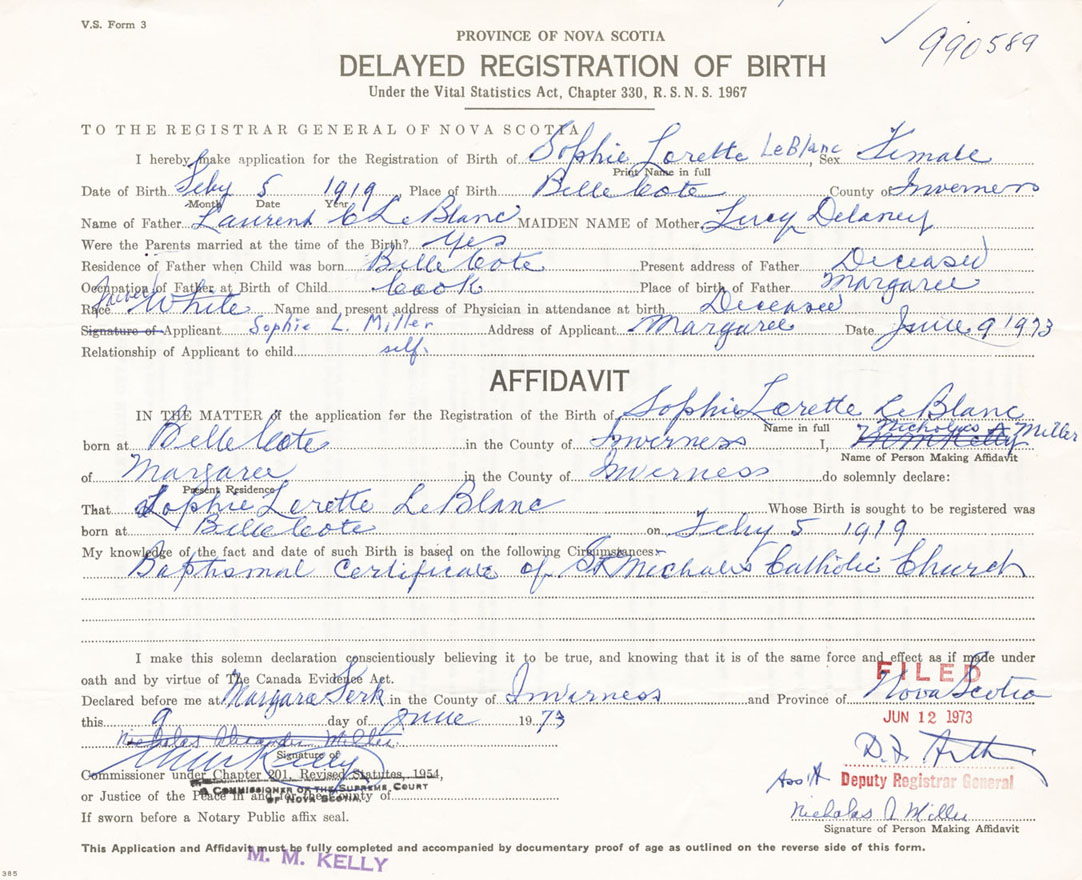 V.S. Form 3
990589
PROVINCE OF NOVA SCOTIA
DELAYED REGISTRATION OF BIRTH
Under the Vital Statistics Act, Chapter 330, R.S.N.S. 1967
TO THE REGISTRAR GENERAL OF NOVA SCOTIA
I hereby make application for the Registration of Birth of Sophie Lorette LeBlanc, Sex Female
Print Name in full
Date of Birth Feby 5 1919 Place of Birth Belle Cote County of Inverness
Month Date Year
Name of Father Laurent C LeBlanc MAIDEN NAME of Mother Lucy Delaney
Were the Parents married at the time of the Birth? Yes
Residence of Father when Child was born Belle Cote Present address of Father Deceased
Occupation of Father at Birth of Child Cook Place of birth of Father Margaree
Race White Name and present address of Physician in attendance at birth Deceased
Signature of Applicant Sophie L. Miller Address of Applicant Margaree Date June 9 1973
Relationship of Applicant to child self.
AFFIDAVIT
IN THE MATTER of the application for the Registration of the Birth of Sophie Lorette LeBlanc
Name in full
born at Belle Cote in the County of Inverness I, Nicholas A Miller
Name of Person Making Affidavit
of Margaree in the County of Inverness do solemnly declare:
Present Residence
That Sophie Lorette LeBlanc Whose Birth is sought to be registered was
born at Belle Cote on Feby 5 1919
My knowledge of the fact and date of such Birth is based on the following Circumstances:
Baptismal Certificate of St Michaels Catholic Church
I make this solemn declaration conscientiously believing it to be true, and knowing that it is of the same force and effect as if made under
oath and by virtue of The Canada Evidence Act.
FILED
Declared before me at Margaree Fork in the County of Inverness and Province of Nova Scotia
this 9 day of June 1973
JUN 12 1973
Nicholas Alexander Miller
Signature of
Commissioner under Chapter 201, Revised Statutes, 1954,
A COMMISSIONER OF THE SUPREME COURT
OF NOVA SCOTIA
or Justice of the Peace in and for the County of
Ass't Deputy Registrar General
If sworn before a Notary Public affix seal.
Nicholas A Miller
Signature of Person Making Affidavit
This Application and Affidavit must be fully completed and accompanied by documentary proof of age as outlined on the reverse side of this form.
M. M. KELLY
385